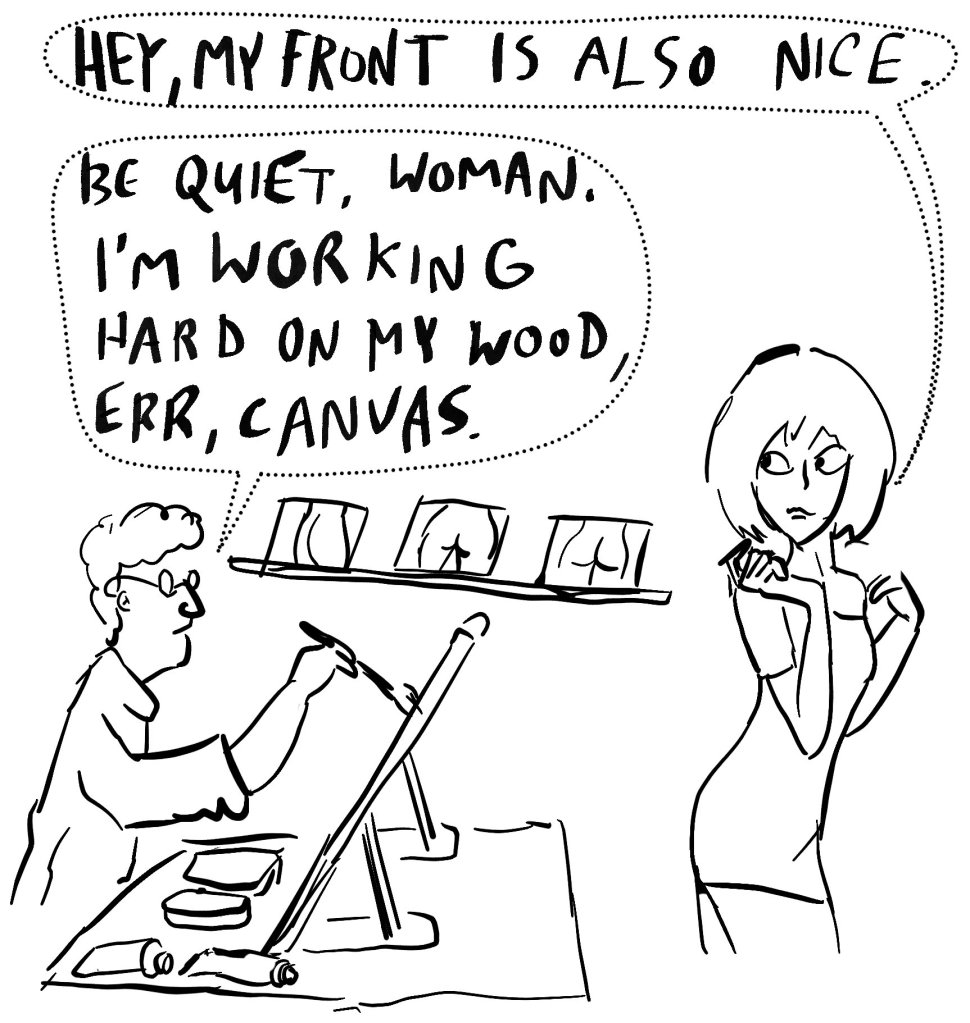 HEY, MY FRONT IS ALSO NICE.
BE QUIET, WOMAN.
I'M WORKING
HARD ON MY WOOD,
ERR, CANVAS.